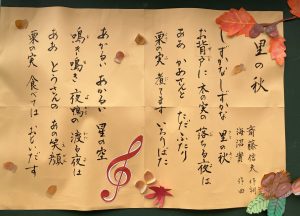 里の秋
斎藤信夫 作詞
海沼實 作曲
しずかなしずかな 里の秋
お背戸に 木の実の 落ちる夜は
ああ かあさんと ただふたり
栗の実 煮てます いろりばた
あかるい あかるい 星の空
鳴き鳴き 夜鴨の 渡る夜は
ああ とうさんの あの笑顔
栗の実 食べては おもいだす